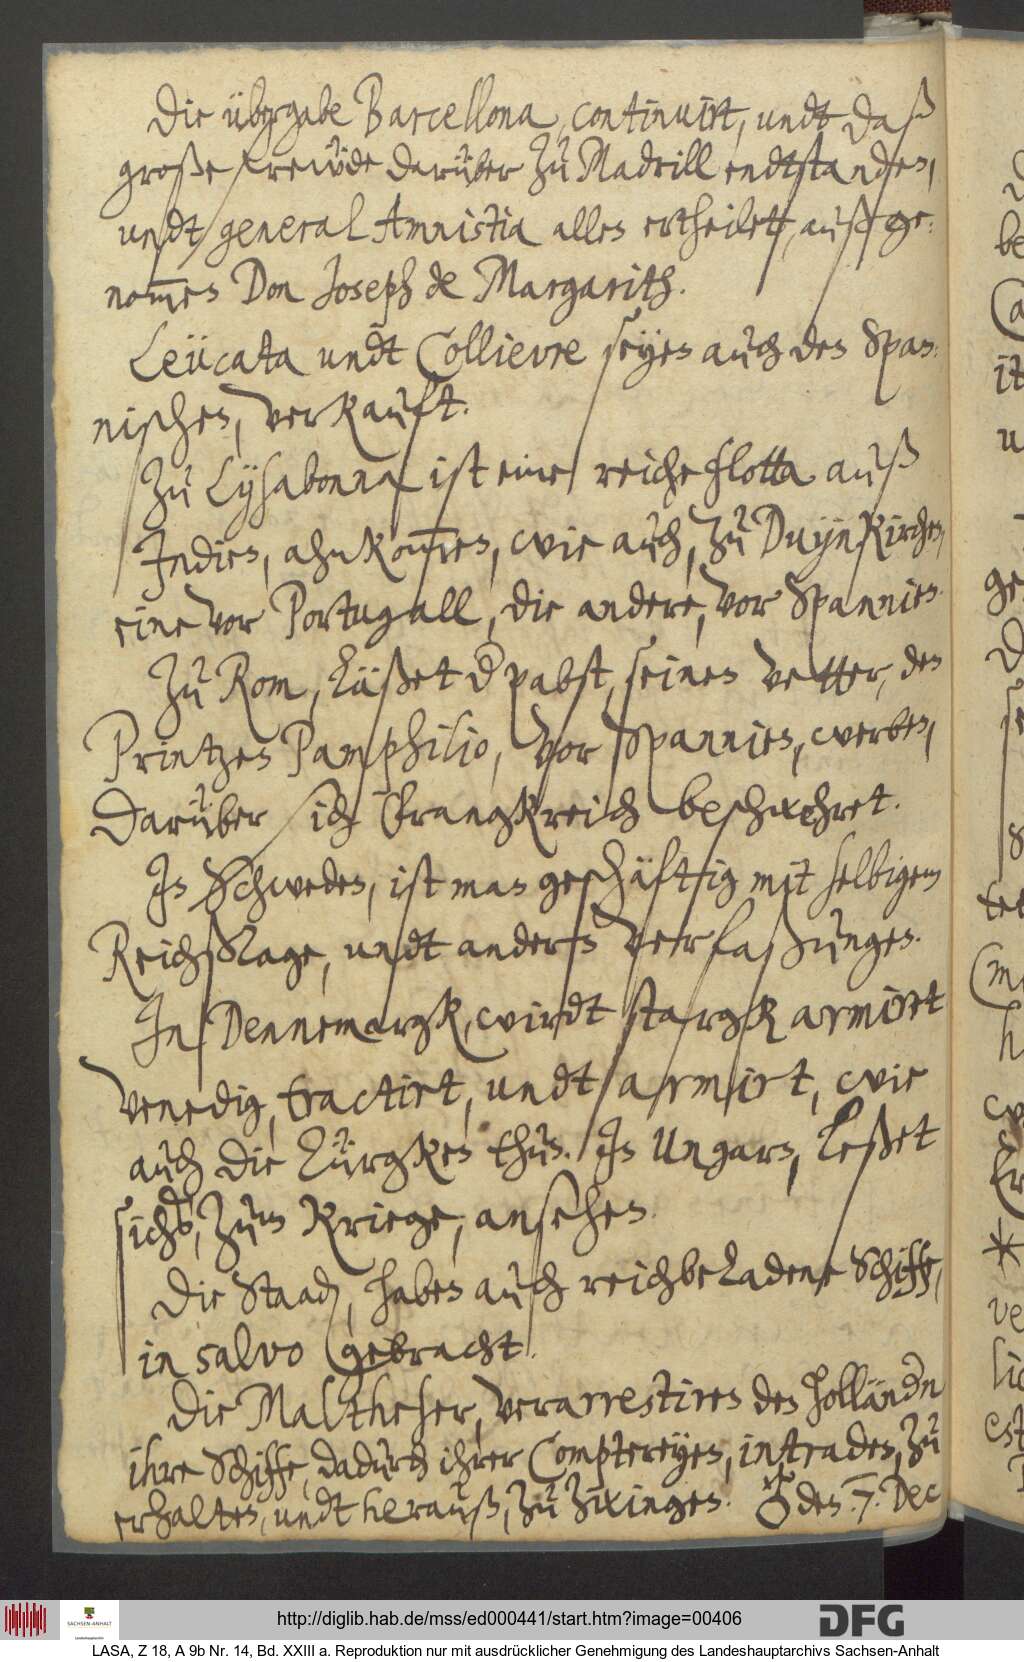 Die übergabe Barcellona, continuirt, undt daß
große frewde darüber zu Madrill endtstanden,
undt general Amnistia allen ertheilett, auß ge-
nom̅en Don Joseph de Margarith.
Leücata undt Collievre seyen auch den Span-
nischen, verkauft.
Zu Lysabonna ist eine reiche flotta auß
Indien, ahnkom̅en, wie auch, zu Duynkirchen,
eine vor Portugall, die andere, vor Spannien.
Zu Rom, läßet d pabst, seinen Vetter, den
Printzen Pamphilio, vor Spannien, werben,
darüber sich Frangkreich beschwehret.
In Schweden, ist man geschäftig mit selbigem
Reichßtage, undt andern verfaßungen.
In Dennemargk, wirdt stargk armirt
Venedig, tractirt, undt armirt, wie
auch die Türgken thun. In Ungarn, leßet
sichs, zum Kriege, ansehen.
Die Staadn, haben auch reichbeladene Schiffe,
in salvo gebracht.
Die Maltheser, verarrestiren den Holländn
ihre Schiffe, dadurch ihrer Comptereyen, intraden, zu
erhalten, undt herauß, zu zwingen. ♂ den .7. Dec
http://diglib.hab.de/mss/ed000441/start.htm?image=00406
DFG
SACHSEN-ANHALT
LASA, Z 18, A 9b Nr. 14, Bd. XXIII a. Reproduktion nur mit ausdrücklicher Genehmigung des Landeshauptarchivs Sachsen-Anhalt